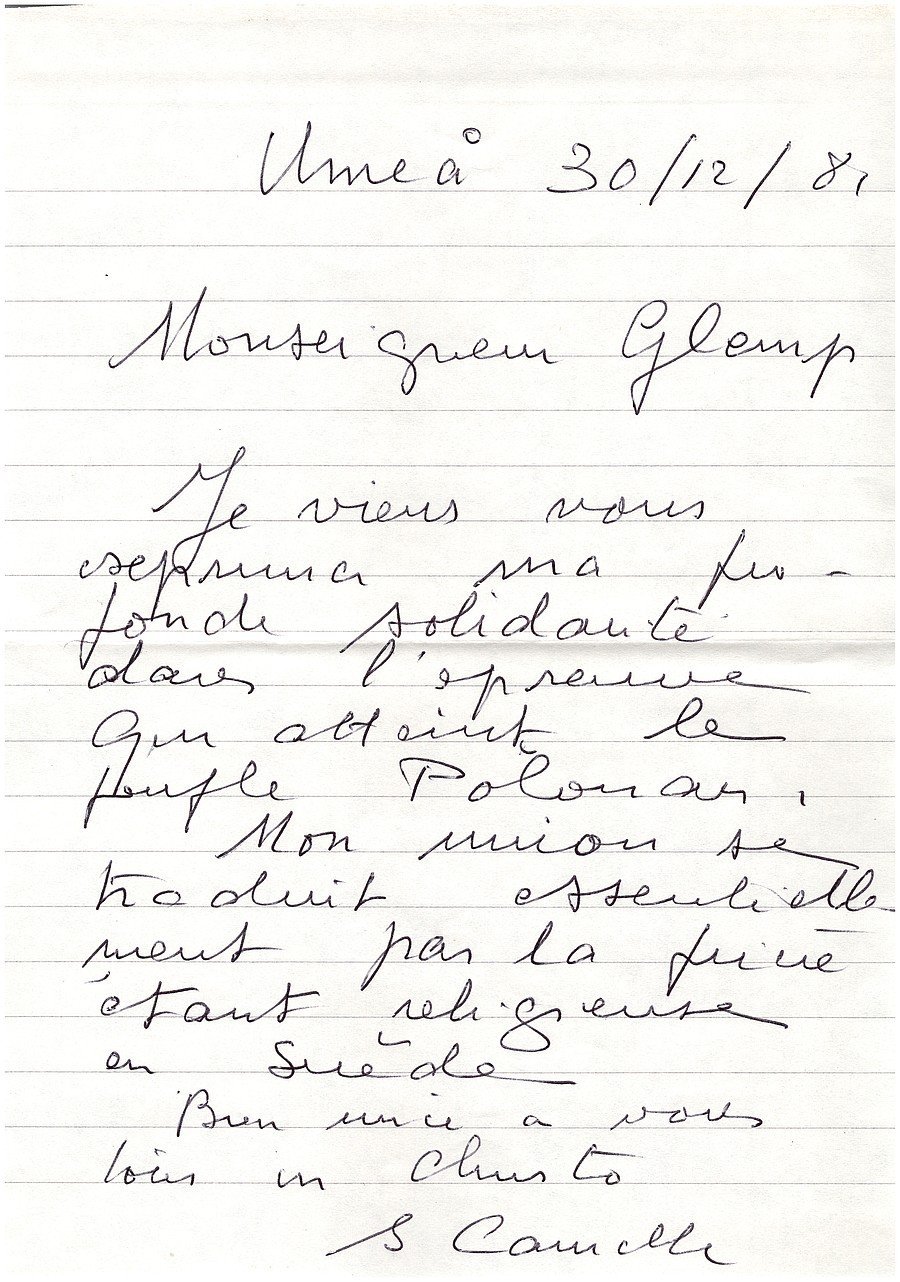 Umeå 30/12/81
Monseigneur Glemp
Je viens vous
exprimer ma pro-
fonde solidarité
dans l'épreuve
qui atteint le
peuple Polonais.
Mon union se
traduit essentielle
ment par la prière
étant religieuse
en Suède
Bien unie a vous
tous in Christo
S Camille